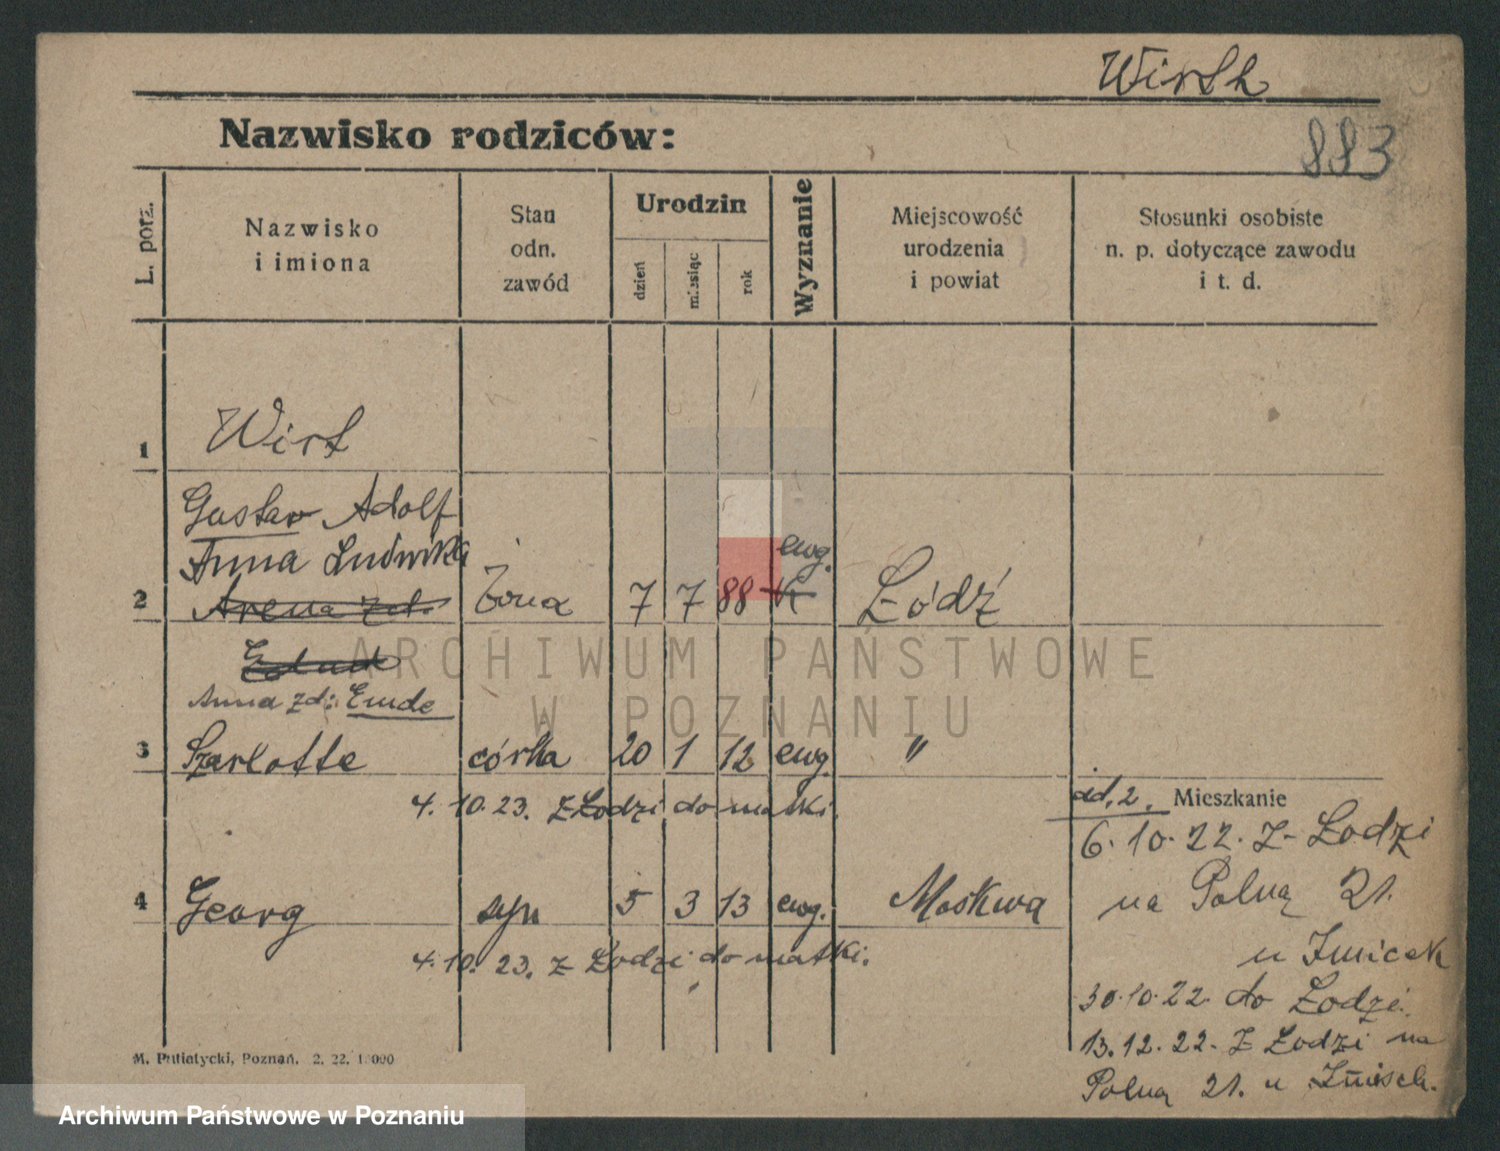 Wirth
883
Nazwisko rodziców:
L. porz.
Nazwisko
i imiona
Stan
odn.
zawód
Urodzin
dzień
miesiąc
rok
Wyznanie
Miejscowość
urodzenia
i powiat
Stosunki osobiste
n. p. dotyczące zawodu
i t. d.
1
Wirt
Gustav Adolf
Anna Ludwika
2 Żona 7 7 88 ewg. Łódź
Anna zd: Emde
3 Szarlotte córka 20 1 12 ewg. "
4. 10. 23. z Łodzi do matki.
4 Georg syn 5 3 13 ewg. Moskwa
4. 10. 23. z Łodzi do matki.
ad. 2. Mieszkanie
6. 10. 22. z Łodzi
na Polną 21.
u
30. 10. 22. do Łodzi.
13. 12. 22. z Łodzi na
Polną 21. u
M. Putiatycki, Poznań. 2. 22.
ARCHIWUM PAŃSTWOWE
W POZNANIU
Archiwum Państwowe w Poznaniu